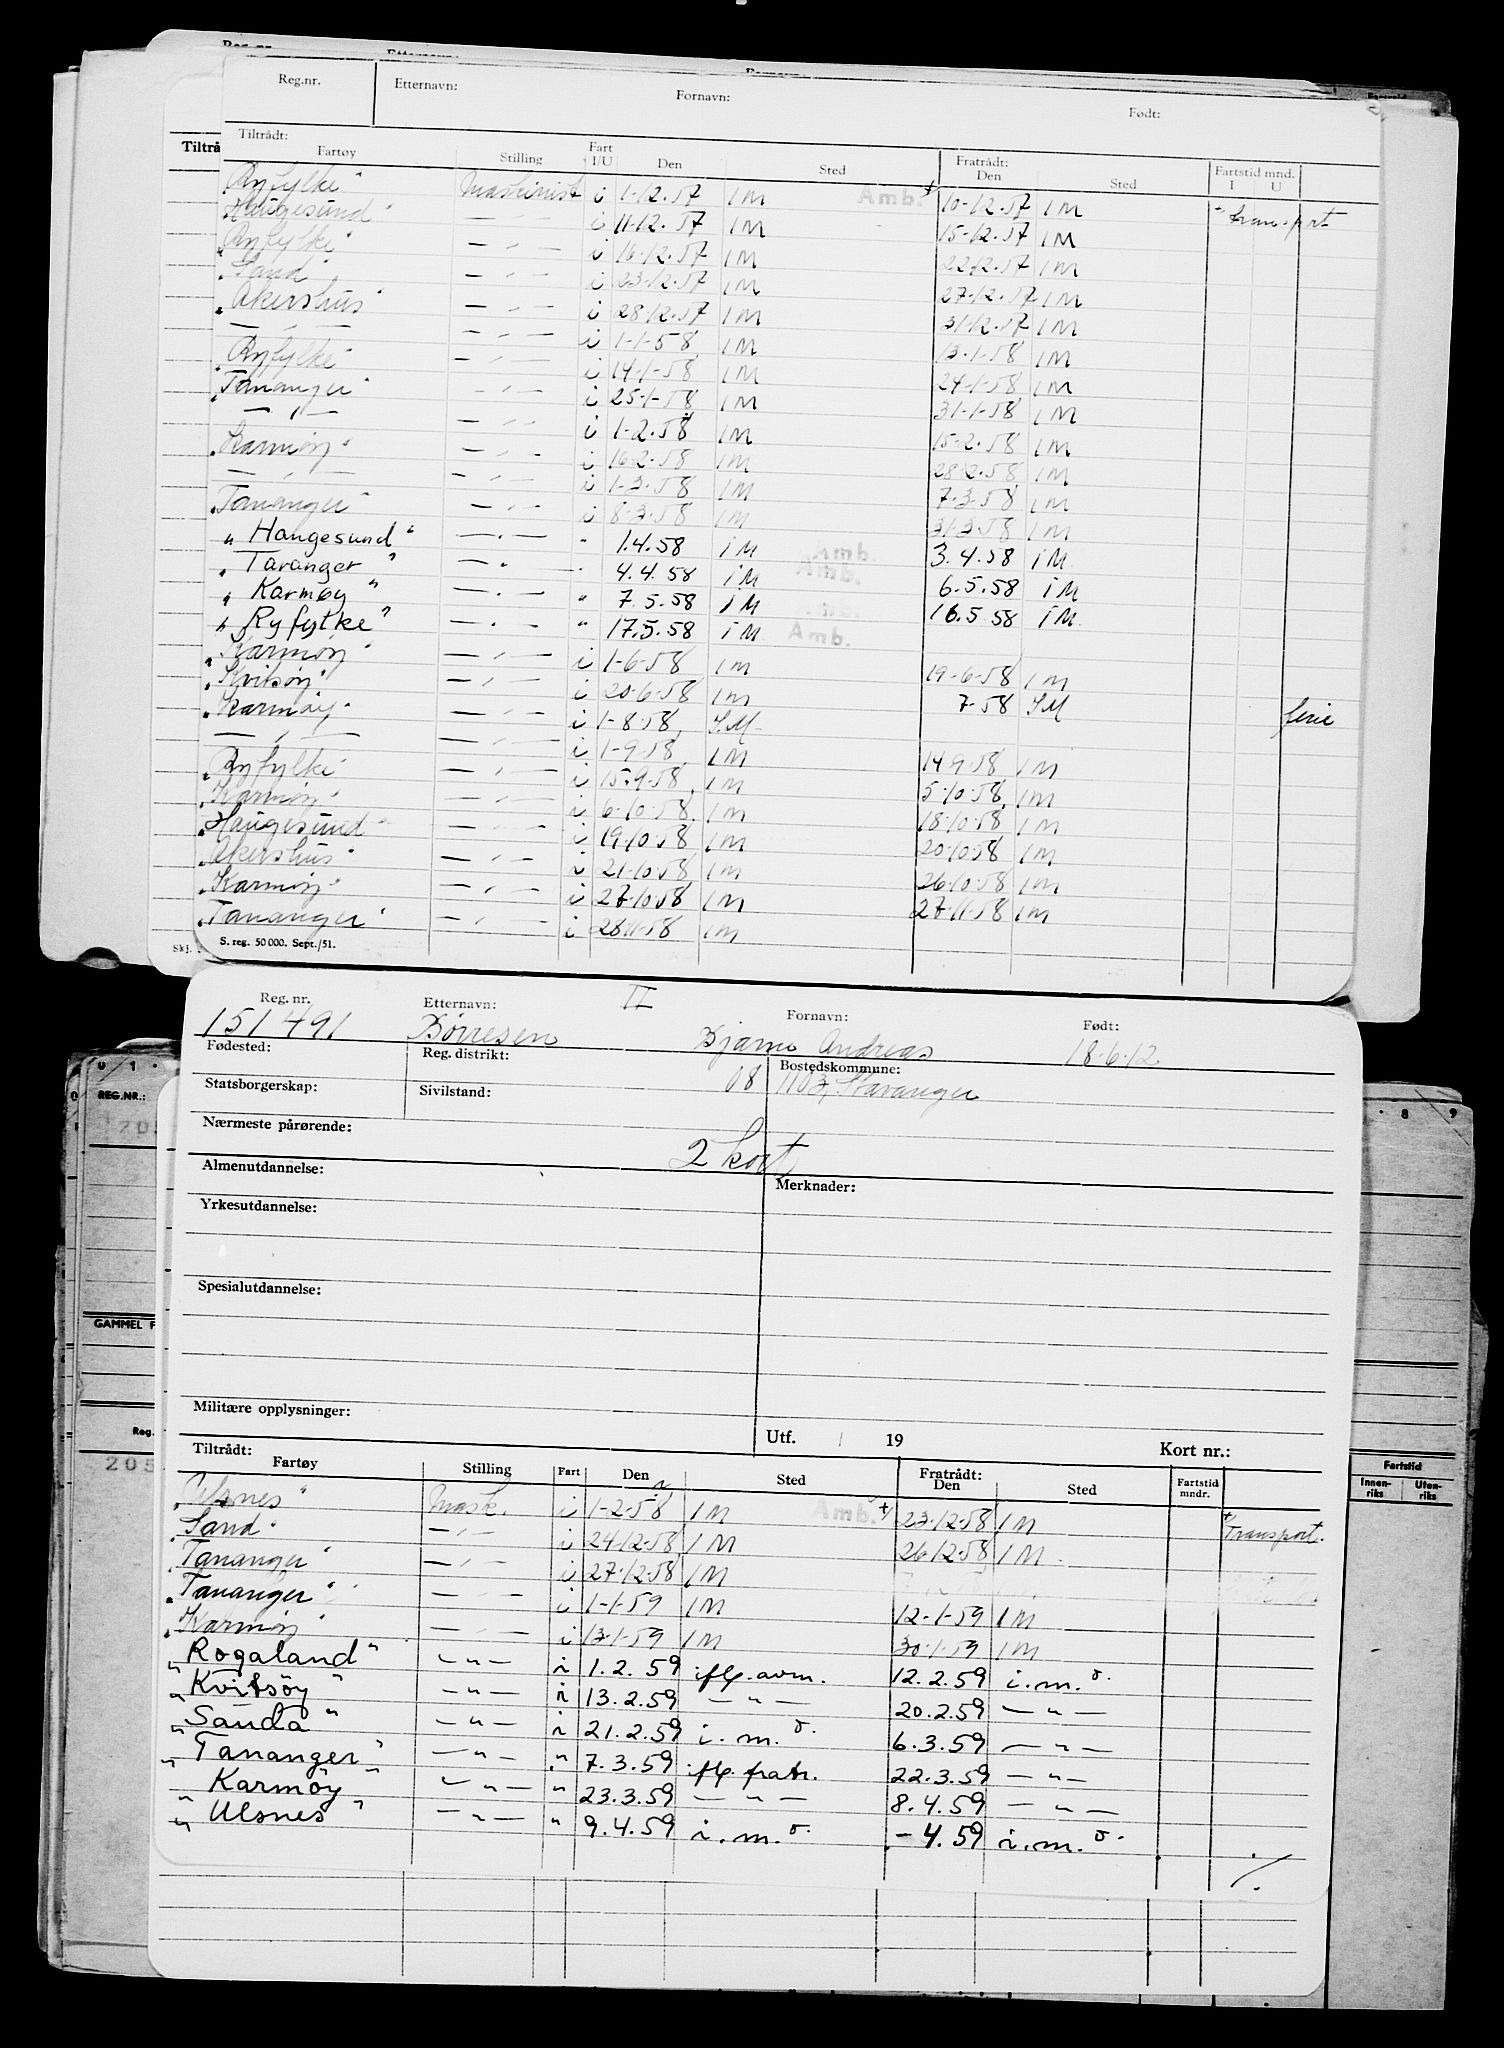 Reg.nr. Etternavn: Fornavn: Født:
Tiltrådt: Fratrådt: Fartstid mnd.
Fartøy Stilling Fart I/U Den Sted Den Sted I U
"Ryfylke" Maskinist i 1-12.57 IM Amb. + 10-12.57 IM + transport
"Haugesund" — " — i 11-12.57 IM 15-12.57 IM
"Ryfylke" — " — i 16-12.57 IM 22-12.57 IM
"Sand" — " — i 23-12.57 IM 27-12.57 IM
"Akershus" — " — i 28-12.57 IM 31-12.57 IM
— " — — " — i 1-1-58 IM 13-1-58 IM
"Ryfylke" — " — i 14-1-58 IM 24-1-58 IM
"Tananger" — " — i 25-1-58 IM 31-1-58 IM
— " — — " — i 1-2.58 IM 15-2.58 IM
"Karmøy" — " — i 16-2-58 IM 28-2.58 IM
— " — — " — i 1-3-58 IM 7-3-58 IM
"Tananger" — " — i 8-3-58 IM 31-3-58 IM
"Haugesund" — " — " 1.4.58 iM Amb. 3.4.58 iM
"Tananger" — " " 4.4.58 iM Amb. 6.5.58 iM
"Karmøy" — " — " 7.5.58 iM Amb. 16.5.58 iM
"Ryfylke" — " — " 17.5.58 iM Amb.
"Karmøy" — " — i 1-6-58 IM 19-6-58 IM
"Kvitsøy" — " — i 20-6-58 IM 7-58 SM ferie
"Karmøy" — " — i 1-8-58 SM
— " — — " — i 1-9-58 IM 14-9-58 IM
"Ryfylke" — " — i 15-9-58 IM 5-10-58 IM
"Karmøy" — " — i 6-10-58 IM 18-10-58 IM
"Haugesund" — " — i 19-10-58 IM 20-10-58 IM
"Akershus" — " — i 21-10-58 IM 26-10-58 IM
"Karmøy" — " — i 27-10-58 IM 27-11-58 IM
"Tananger" — " — i 28-11-58 IM
S. reg. 50 000. Sept./51.
Reg. nr. Etternavn: II Fornavn: Født:
151491 Børresen Bjarne Andreas 18-6-12
Fødested: Reg. distrikt: 08 Bostedskommune: 1103, Stavanger
Statsborgerskap: Sivilstand:
Nærmeste pårørende:
2 kort
Almenutdannelse: Merknader:
Yrkesutdannelse:
Spesialutdannelse:
Militære opplysninger:
Utf. / 19 Kort nr.:
Tiltrådt: Fratrådt:
Fartøy Stilling Fart Den Sted Den Sted Fartstid mndr.
"Ulsnes" Mask. i 1-2-58 IM Amb. + 23-12-58 IM + Transport.
"Sand" — " — i 24-12-58 IM 26-12-58 IM
"Tananger" — " — i 27-12-58 IM
"Tananger" — " — i 1-1-59 IM 12-1-59 IM
"Karmøy" — " — i 13-1-59 IM 30-1-59 IM
"Rogaland" — " — i 1.2.59 12.2.59 i.m.o.
"Kvitsøy" — " — i 13.2.59 — " — 20.2.59 — " —
"Sauda" — " — i 21.2.59 i.m.o. 6.3.59 — " —
"Tananger" — " — " 7.3.59 ifl. fratr. 22.3.59 — " —
"Karmøy" — " — " 23.3.59 — " — 8.4.59 — " —
"Ulsnes" — " — " 9.4.59 i.m.o. - 4.59 i.m.o.
REG.NR.:
GAMMEL F
Reg.
205
Fartstid
Innenriks Utenriks